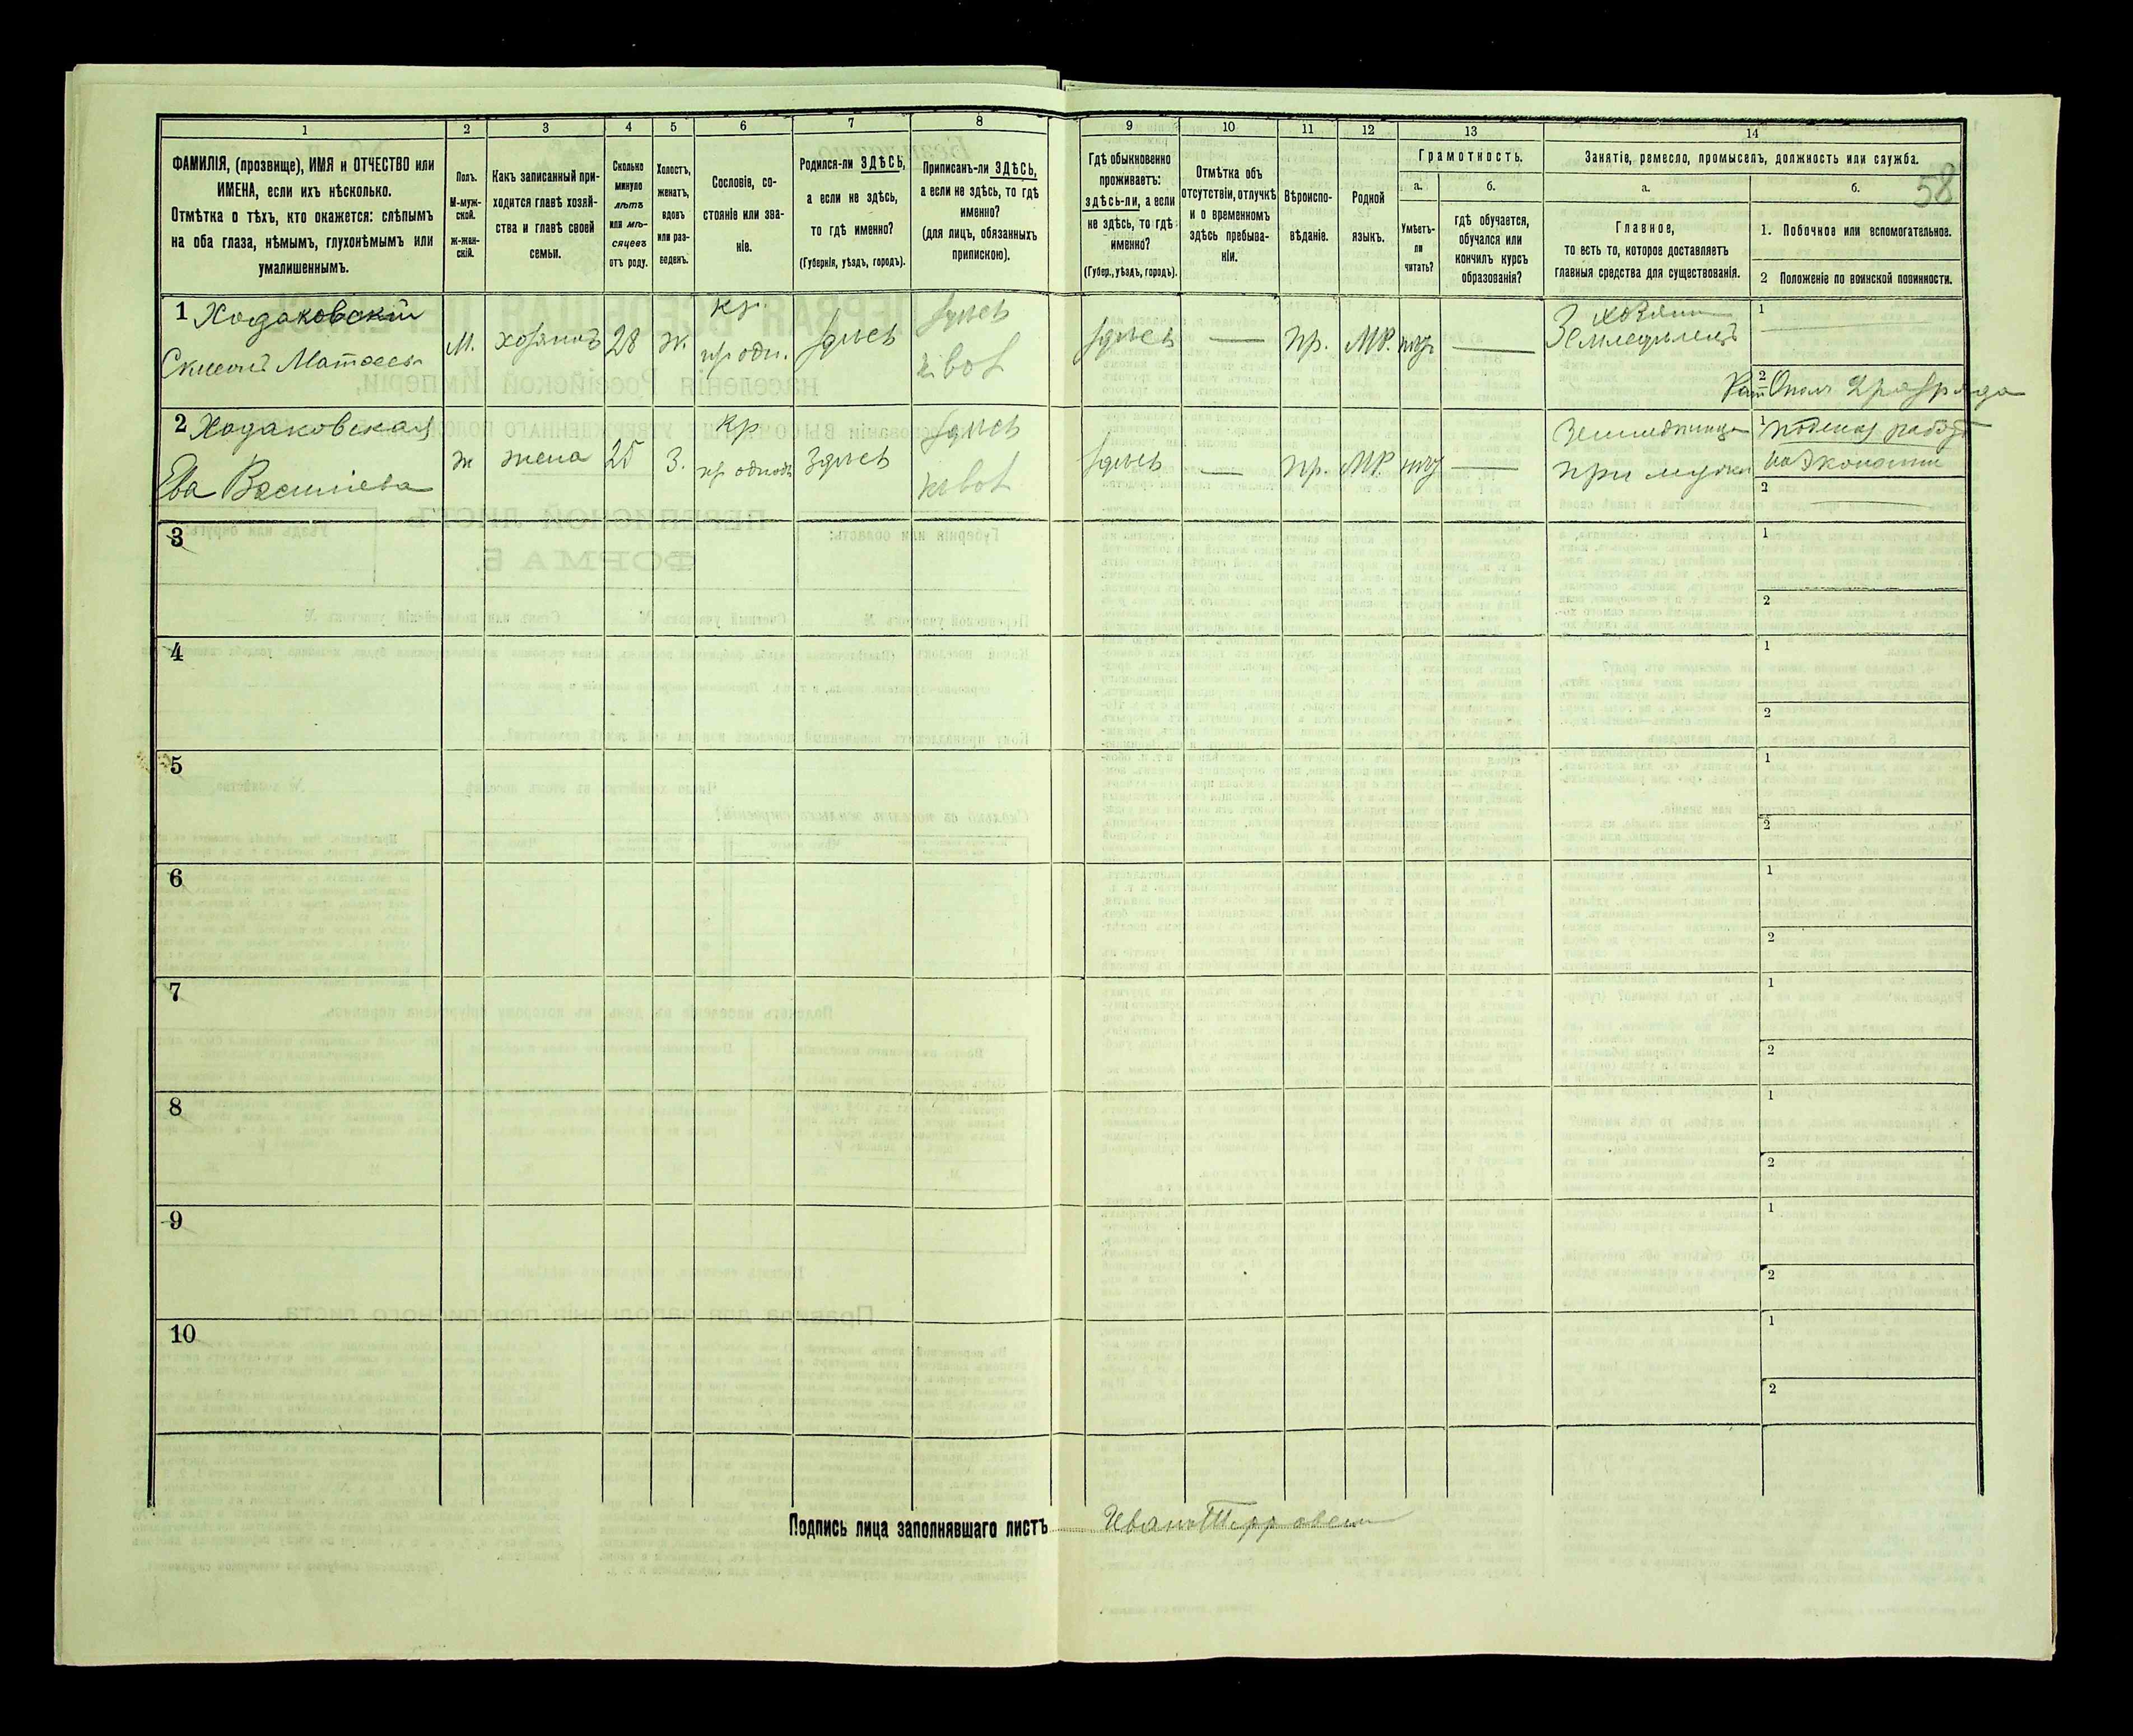 1
2
3
4
5
6
7
8
9
10
11
12
13
14
ФАМИЛІЯ, (прозвище), ИМЯ и ОТЧЕСТВО или
ИМЕНА, если ихъ нѣсколько.
Отмѣтка о тѣхъ, кто окажется: слѣпымъ
на оба глаза, нѣмымъ, глухонѣмымъ или
умалишеннымъ.
Полъ.
М-муж-
ской.
ж-жен-
скій.
Какъ записанный при-
ходится главѣ хозяй-
ства и главѣ своей
семьи.
Сколько
минуло
лѣтъ
или мѣ-
сяцевъ
отъ роду.
Холостъ,
женатъ,
вдовъ
или раз-
веденъ.
Сословіе, со-
стояніе или зва-
ніе.
Родился-ли ЗДѢСЬ,
а если не здѣсь,
то гдѣ именно?
(Губернія, уѣздъ, городъ).
Приписанъ-ли ЗДѢСЬ,
а если не здѣсь, то гдѣ
именно?
(для лицъ, обязанныхъ
припискою).
Гдѣ обыкновенно
проживаетъ:
здѣсь-ли, а если
не здѣсь, то гдѣ
именно?
(Губер., уѣздъ, городъ).
Отмѣтка объ
отсутствіи, отлучкѣ
и о временномъ
здѣсь пребыва-
ніи.
Вѣроиспо-
вѣданіе.
Родной
языкъ.
Грамотность.
а.
Умѣетъ-
ли
читать?
б.
гдѣ обучается,
обучался или
кончилъ курсъ
образованія?
Занятіе, ремесло, промыселъ, должность или служба.
58
а.
Главное,
то есть то, которое доставляетъ
главныя средства для существованія.
б.
1. Побочное или вспомогательное.
2 Положеніе по воинской повинности.
1 Ходаковскій
Матѳеевъ
М.
хозяинъ
28
ж.
кр.
здѣсь
здѣсь
здѣсь
—
пр.
МР.
—
хозяинъ
Земледѣлецъ
1
2
Опол. 2 разряда
2 Ходаковская
Ева Васильева
ж
жена
25
з.
кр
здѣсь
здѣсь
здѣсь
—
пр.
МР.
—
при мужѣ
1
2
3
1
2
4
1
2
5
1
2
6
1
2
7
1
2
8
1
2
9
1
2
10
1
2
Подпись лица заполнявшаго листъ